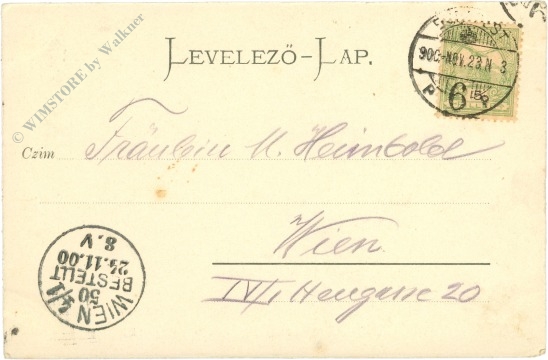 © WIMSTORE by Walkner
LEVELEZŐ-LAP.
900-NOV.23.N 3
P
6
Czim Fräulein M. Heimbold
Wien
IV/1 Heugasse 20
WIEN 4/1
50
BESTELLT
24.11.00
8.V